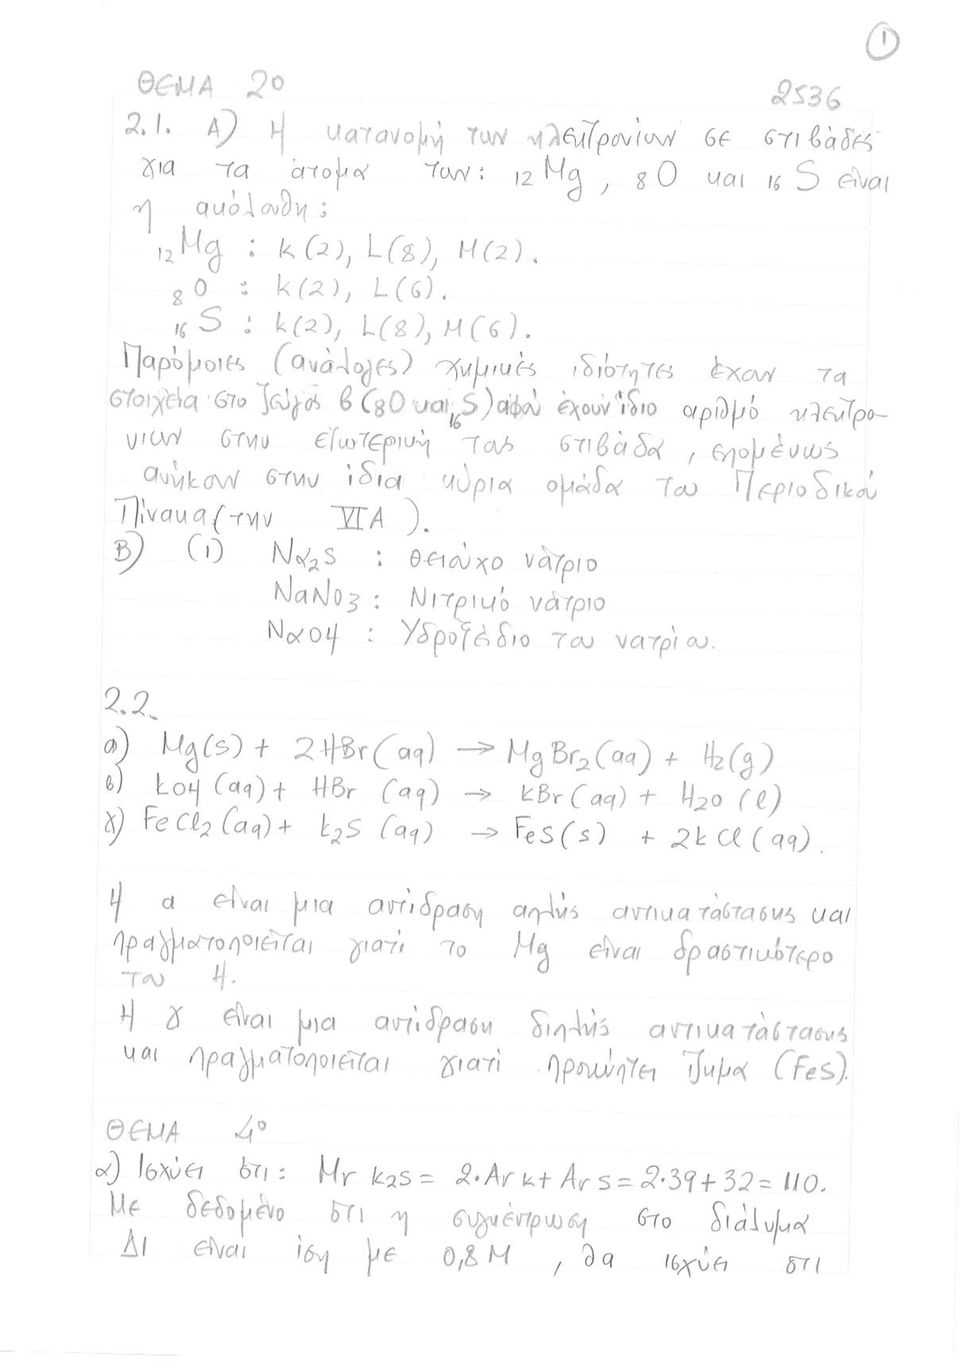 1
ΘΕΜΑ 2ο
2536
2.1. Α) Η κατανομή των ηλεκτρονίων σε στιβάδες
για τα άτομα των: 12Mg, 8O και 16S είναι
η ακόλουθη:
12Mg : K(2), L(8), M(2).
8O : K(2), L(6).
16S : K(2), L(8), M(6).
Παρόμοιες (ανάλογες) χημικές ιδιότητες έχουν τα
στοιχεία στο ζεύγος β (8O και 16S) αφού έχουν ίδιο αριθμό ηλεκτρο-
νίων στην εξωτερική τους στιβάδα, επομένως
ανήκουν στην ίδια κύρια ομάδα του Περιοδικού
Πίνακα (την VIA).
Β) (i) Na2S : θειούχο νάτριο
NaNO3 : Νιτρικό νάτριο
NaOH : Υδροξείδιο του νατρίου.
2.2.
α) Mg(s) + 2HBr(aq) → MgBr2(aq) + H2(g)
β) KOH (aq) + HBr (aq) → KBr(aq) + H2O (l)
γ) FeCl2(aq) + K2S (aq) → FeS(s) + 2KCl(aq).
Η α είναι μια αντίδραση απλής αντικατάστασης και
πραγματοποιείται γιατί το Mg είναι δραστικότερο
του Η.
Η γ είναι μια αντίδραση διπλής αντικατάστασης
και πραγματοποιείται γιατί προκύπτει ίζημα (FeS).
ΘΕΜΑ 4ο
α) Ισχύει ότι: Mr K2S = 2·Ar K + Ar S = 2·39+32 = 110.
Με δεδομένο ότι η συγκέντρωση στο διάλυμα
Δ1 είναι ίση με 0,8 M, θα ισχύει ότι